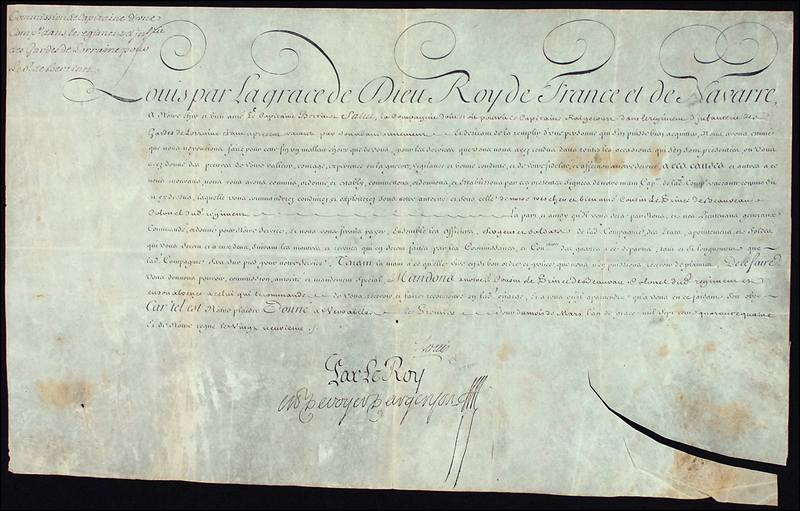 Commission de Capitaine d'une
Comp.e dans le regiment d'jnf.rie
des Gardes de Lorraine pour
Le S.r de Berrines
Louis par La grace de Dieu Roy de France et de Navarre,
A Notre cher et bien amé Le Capitaine Salut, La Compagnie dont étoit pourvû le Capitaine Raigecourt dans le regiment d'Infanterie des
Gardes de Lorraine étant apresent vacante et desirant de la remplir d'une personne qui s'en puisse bien acquitter, Nous avons estimé
que nous ne pouvions faire pour cette fin un meilleur choix que de vous, pour les services que vous nous avez rendus dans toutes les occasions qui s'en sont presentées, ou Vous
avez donné des preuves de votre valleur, courage, experience en la guerre, vigilance et bonne conduite, et de votre fidelité et affection a notre service A ces causes et autres a ce
nous mouvans, nous vous avons commis, ordonné et etably, commettons, ordonnons, et etablissons par ces presentes signées de notre main Cap.ne de lad. Comp.e vaccante comme dit
est cy dessus, laquelle vous commanderez, conduirez et exploiterez sous notre autorité et sous celle de notre tres cher et bien amé Cousin Le Prince de Beauveau
Colonel dud. regiment la part et ainsy qu'il vous sera par Nous, et nos Lieutenans generaux
Commandé, ordonné pour Notre Service, Et nous vous ferons payer, Ensemble les Officiers, et Soldats de lad. Compagnie des Etats, apointemens, et Soldes
qui vous seront et a eux deus, suivant les montres, et reveües qui en seront faites par les Commissaires, et des guerres a ce departis, tant et si longuement que
lad. Compagnie sera sur pied pour notre service, Tenant la main a ce qu'elle vive en si bon ordre et police que nous n'en puissions recevoir de plainte, De ce faire
Vous donnons pouvoir, commission, autorité et mandement special Mandons a notred. Cousin Le Prince de Beauveau Colonel dud. regiment et
en son absence a celui qui le commande de vous recevoir et faire reconnoitre en lad. charge, et a tous qu'il apartiendra qu'a vous en ce faisant soit obei
Car tel est Notre plaisir Donné a Versailles le Premier jour du mois de Mars l'an de grace mil sept cent quarante quatre
Et de Notre regne le Vingt neuvieme
Louis
Par Le Roy
De voyer D'argenson